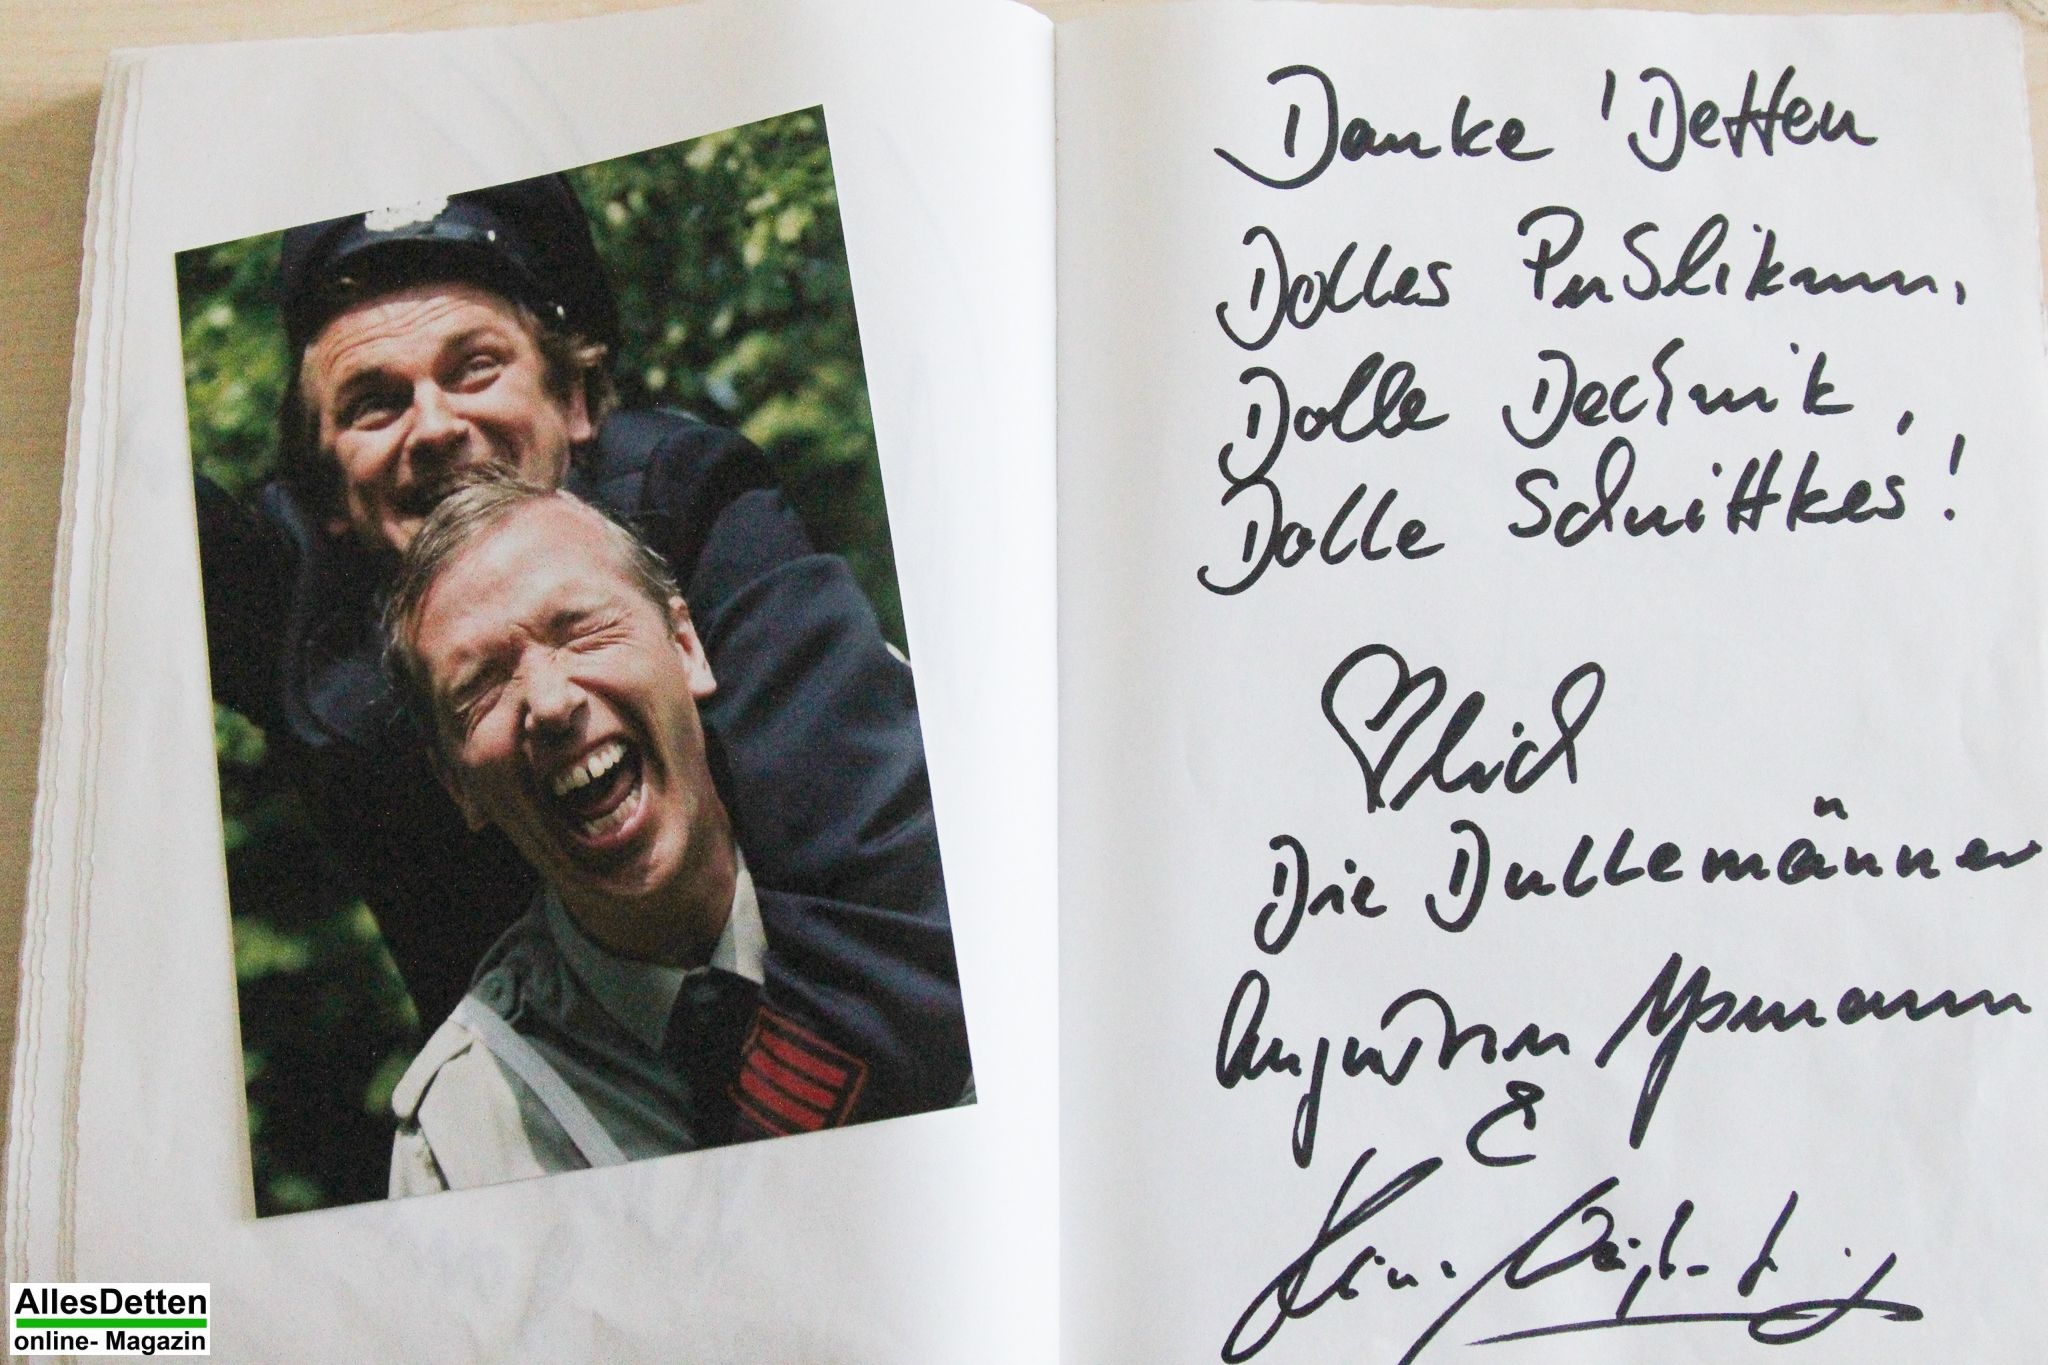 Danke Detten
Dolles Publikum,
Dolle Dechnik,
Dolle Schnittkes!
♡lich
Die Bullemänner
Augustin Upsmann
&
AllesDetten
online- Magazin